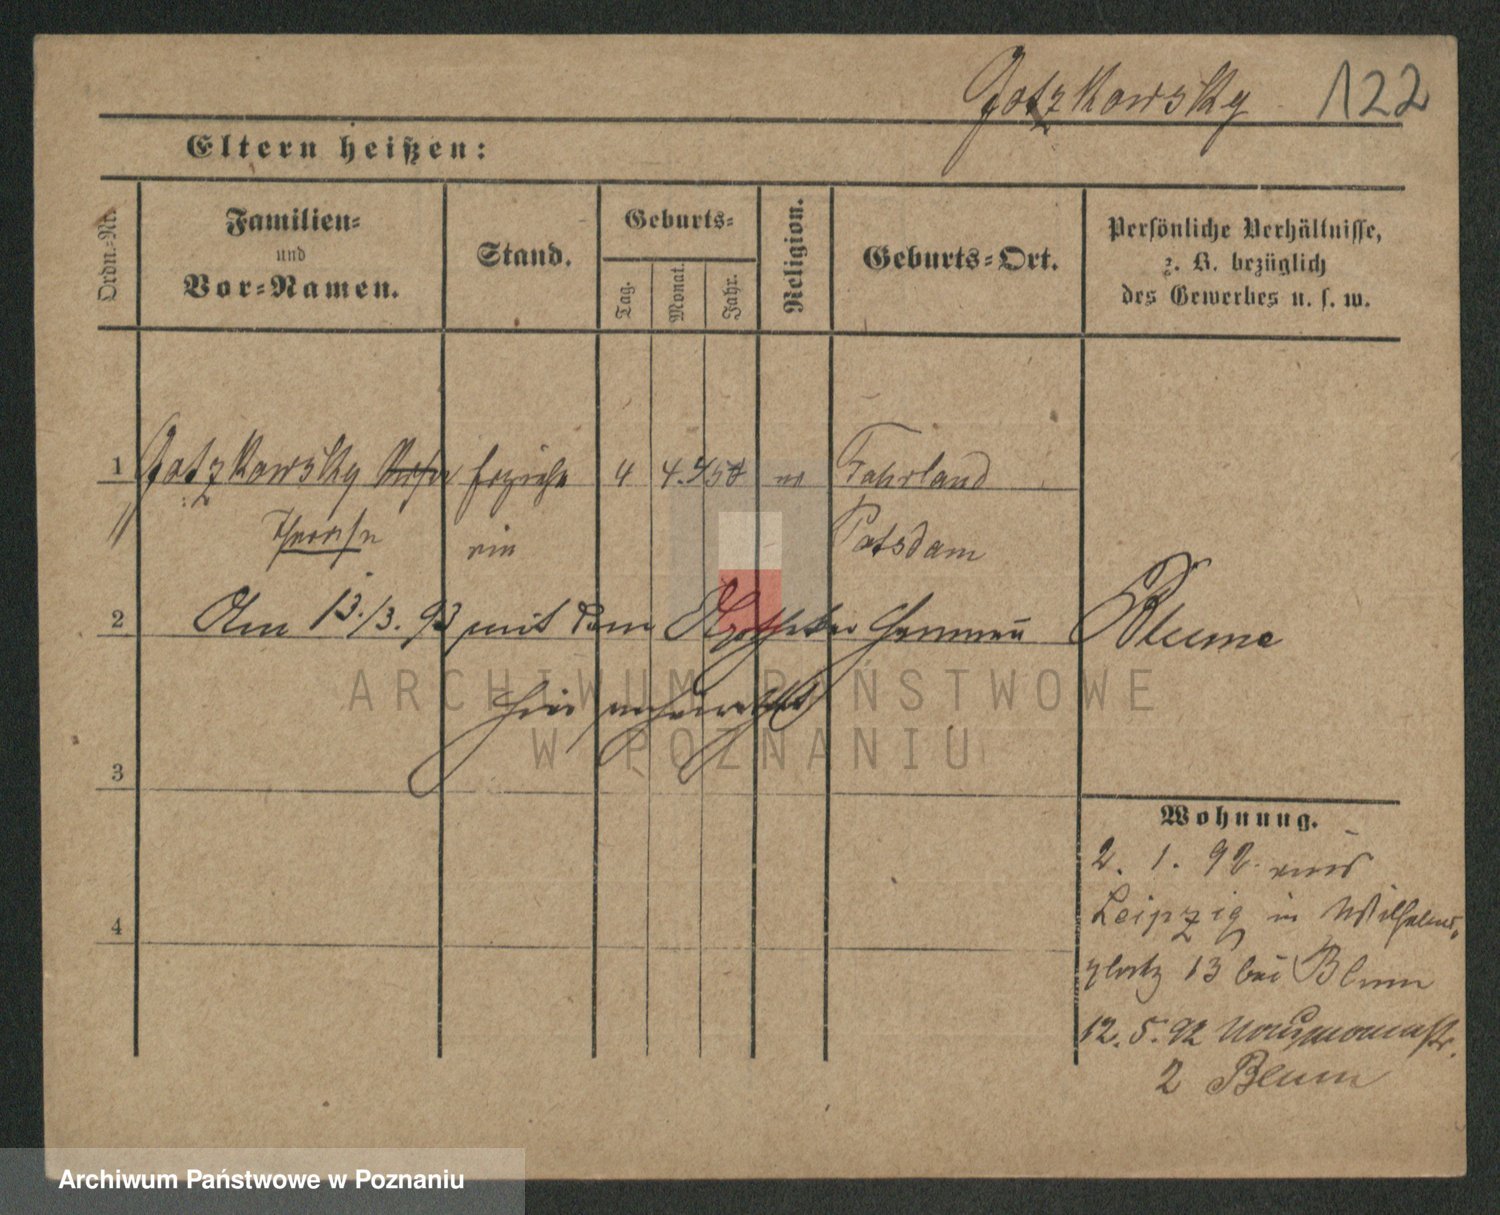 Gotzkowsky 122
Eltern heißen:
Ordn.-Nr.
Familien-
und
Vor-Namen.
Stand.
Geburts-
Tag.
Monat.
Jahr.
Religion.
Geburts-Ort.
Persönliche Verhältnisse,
z. B. bezüglich
des Gewerbes u. s. w.
1 Gotzkowsky Erziehe 4 4. 58 Fahrland
Therese rin Potsdam
2 Am 13./3. 93 mit dem Apotheker Herman Blume
hier verheirathet
ARCHIWUM PAŃSTWOWE
W POZNANIU
3
Wohnung.
2. 1. 92. aus
Leipzig in Wilhelms-
platz 13 bei Blum
4
12. 5. 92 Naumannstr.
2 Blum
Archiwum Państwowe w Poznaniu